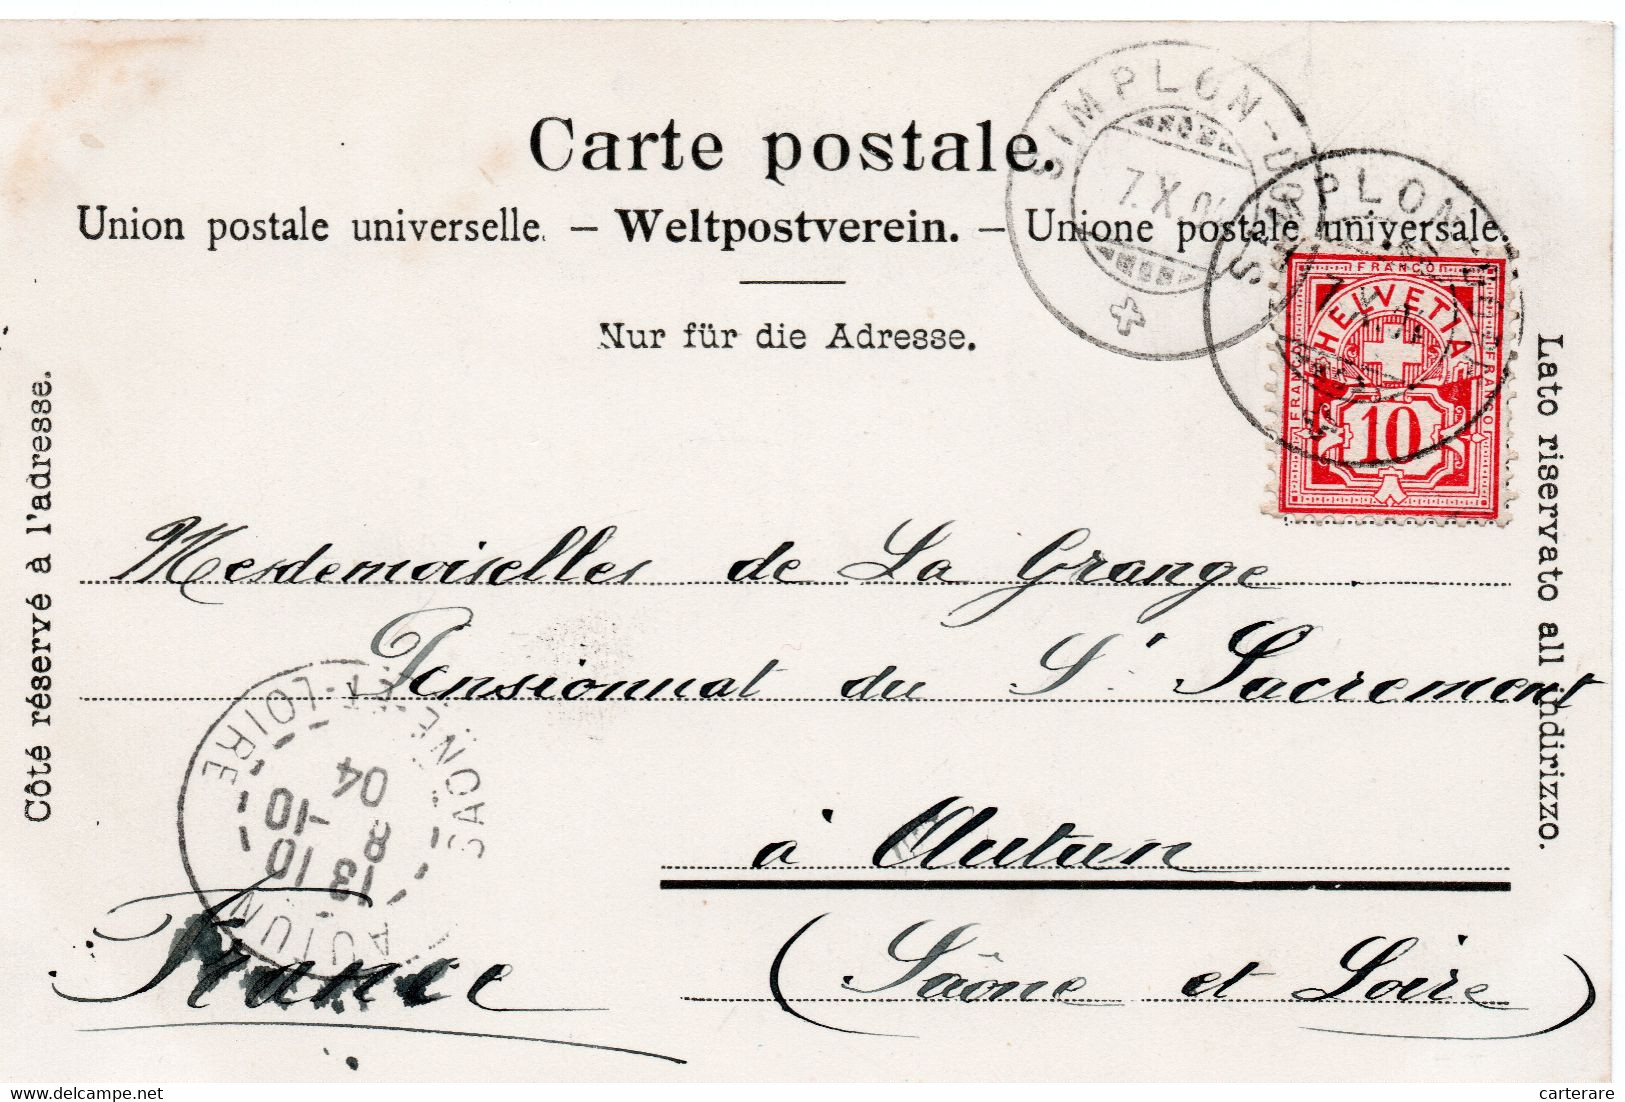 Carte postale.
Union postale universelle. – Weltpostverein. – Unione postale universale.
Nur für die Adresse.
Côté réservé à l'adresse.
Lato riservato all indirizzo.
SIMPLON-
7.X.04
SIMPLON
FRANCO
HELVETIA
FRANCO
FRANCO
10
Mesdemoiselles de La Grange
Pensionnat du St Sacrement
à Autun
(Saône et Loire)
France
AUTUN
13 10
8 -10
04
SAONE-ET-LOIRE
delcampe.net
carterare